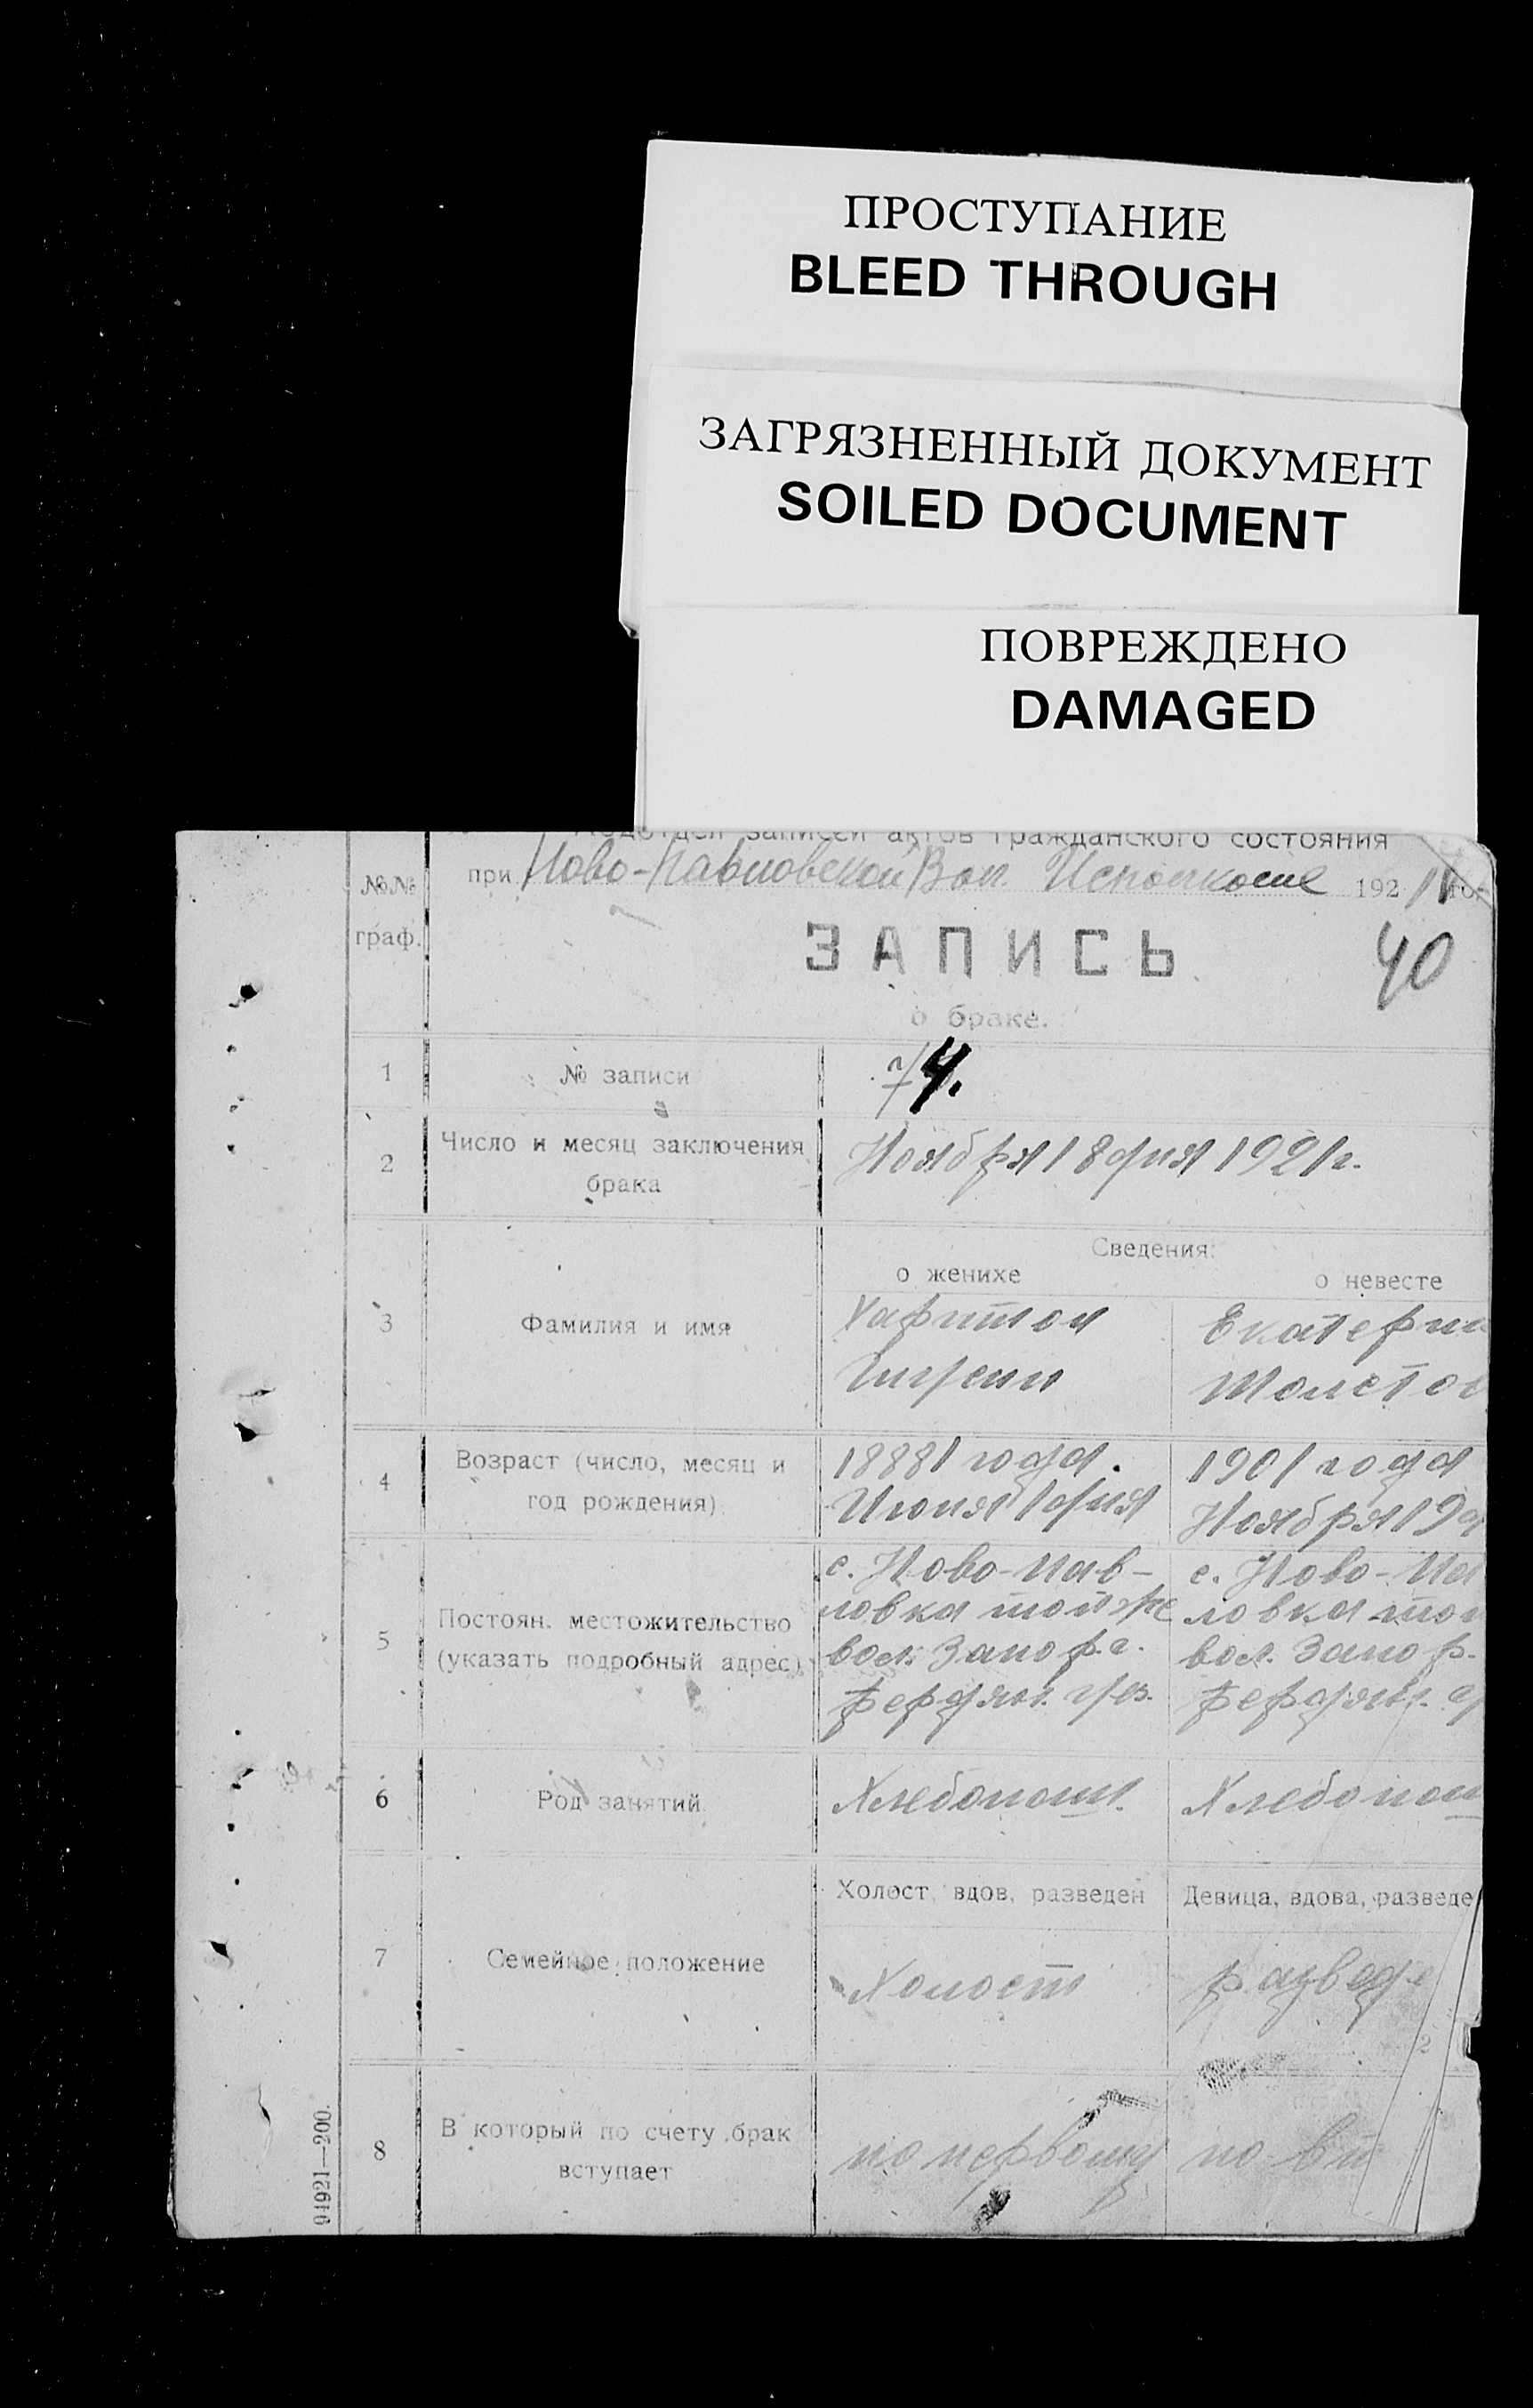 ПРОСТУПАНИЕ
BLEED THROUGH
ЗАГРЯЗНЕННЫЙ ДОКУМЕНТ
SOILED DOCUMENT
ПОВРЕЖДЕНО
DAMAGED
Подотдел записей актов гражданского состояния
№№ граф.
при Ново-Павловской Вол. Исполкоме 1921 го
ЗАПИСЬ
40
о браке.
1 № записи 74.
2 Число и месяц заключения брака
Ноября 18 дня 1921 г.
Сведения:
о женихе о невесте
3 Фамилия и имя
Харитон
Екатерин
4 Возраст (число, месяц и год рождения)
года.
Июня 1 дня
1901 года
Ноября 19
5 Постоян. местожительство (указать подробный адрес)
с. Ново-Пав-
ловка той же
вол. Запор. г.
Бердян. уез.
с. Ново-Па
ловка той
вол. Запор.
Бердян. у
6 Род занятий
Хлебопаш.
Хлебопаш
7 Семейное положение
Холост, вдов, разведен
Девица, вдова, разведе
Холост
разведе
8 В который по счету брак вступает
по первому
по вт
94921—200.